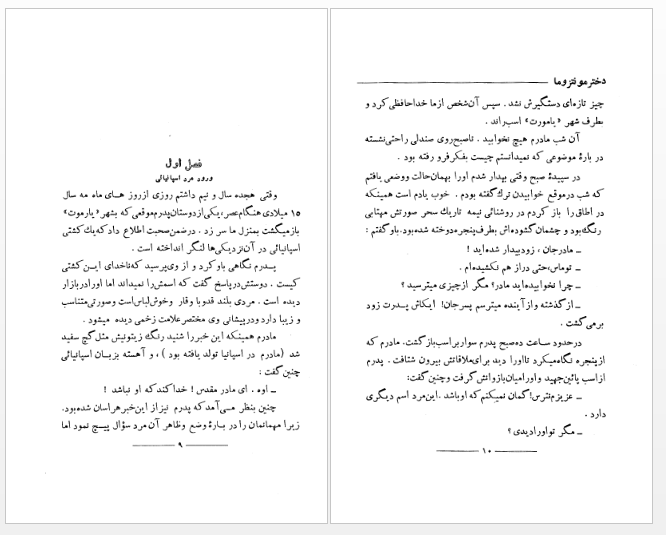 فصل اول
ورود مرد اسپانیائی
وقتی هجده سال و نیم داشتم روزی ازروز هـای ماه مه سال
۱۵ میلادی هنگام عصر، یکی از دوستان پدرم موقعی که بشهر «یارموت»
بازمیگشت بمنزل ما سر زد . درضمن صحبت اطلاع داد که یك کشتی
اسپانیائی در آن نزدیکی‌ها لنگر انداخته است .
پـدرم نگاهی باو کرد و از وی پرسید که ناخدای ایـن کشتی
کیست . دوستش درپاسخ گفت که اسمش را نمیداند اما اورا در بازار
دیده است . مردی بلند قد و با وقار وخوش لباس است وصورتی متناسب
و زیبا دارد و در پیشانی وی مختصر علامت زخمی دیده میشود .
مادرم همینکه این خبر را شنید رنگ زیتونیش مثل گچ سفید
شد (مادرم در اسپانیا تولد یافته بود ) ، و آهسته بزبـان اسپانیائی
چنین گفت :
ـ اوه . ای مادر مقدس ! خدا کند که او نباشد !
چنین بنظر مـی‌آمد که پدرم نیز از این خبر هراسان شده بود.
زیرا مهمانمان را در بـارهٔ وضع وظاهر آن مرد سؤال پیـچ نمود اما
۹
دختر مونتزوما
چیز تازه‌ای دستگیرش نشد . سپس آن شخص ازما خداحافظی کرد و
بطرف شهر «یامورت» اسب راند .
آن شب مادرم هیچ نخوابید . تاصبح روی صندلی راحتی نشسته
در بارهٔ موضوعی که نمیدانستم چیست بفکر فرو رفته بود .
در سپیدهٔ صبح وقتی بیدار شدم اورا بهمان حالت ووضعی یافتم
که شب در موقع خوابیدن ترك گفته بودم . خوب یادم است همینکه
در اطاق را باز کردم در روشنائی نیمه تاریك سحر صورتش مهتابی
رنگ بود و چشمان گشوده‌اش بطرف پنجره دوخته شده بود. باو گفتم :
ـ مادرجان ، زود بیدار شده‌اید !
ـ توماس، حتی دراز هم نکشیده‌ام .
ـ چرا نخوابیده‌اید مادر؟ مگر ازچیزی میترسید ؟
ـ از گذشته و از آینده میترسم پسرجان! ایکاش پـدرت زود
بر می‌گشت .
درحدود سـاعت ده صبح پدرم سوار براسب بازگشت. مادرم که
از پنجره نگاه میکرد تا اورا دید برای ملاقاتش بیرون شتافت . پدرم
از اسب پائین جهید و اورا میان بازوانش گرفت و چنین گفت:
ـ عزیزم نترس! گمان نمیکنم که اوباشد .این مرد اسم دیگری
دارد .
ـ مگر تو اورا دیدی ؟
۱۰